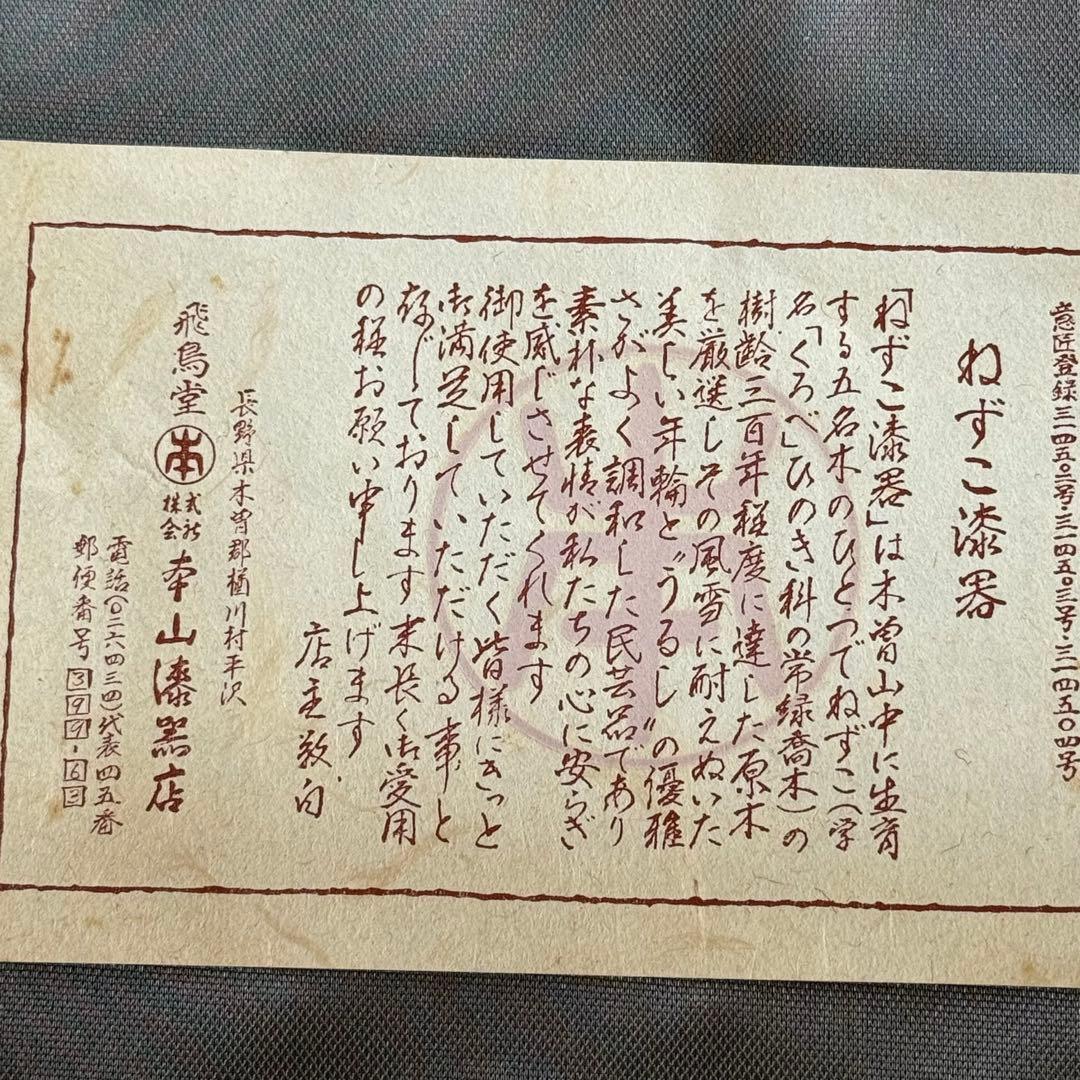 意匠登録三一四五〇二号・三一四五〇三号・三一四五〇四号
ねずこ漆器
「ねずこ漆器」は木曽山中に生育
する五名木のひとつでねずこ(学
名「くろべ」ひのき科の常緑喬木)の
樹齢三百年程度に達した原木
を厳選しその風雪に耐えぬいた
美しい年輪と〝うるし〟の優雅
さがよく調和した民芸品であり
素朴な表情が私たちの心に安らぎ
を感じさせてくれます
御使用していただく皆様にきっと
御満足していただける事と
存じております末長く御愛用
の程お願い申し上げます
店主敬白
長野県木曽郡楢川村平沢
飛鳥堂 本 株式会社 本山漆器店
電話(〇二六四三四)代表四五番
郵便番号 399-63